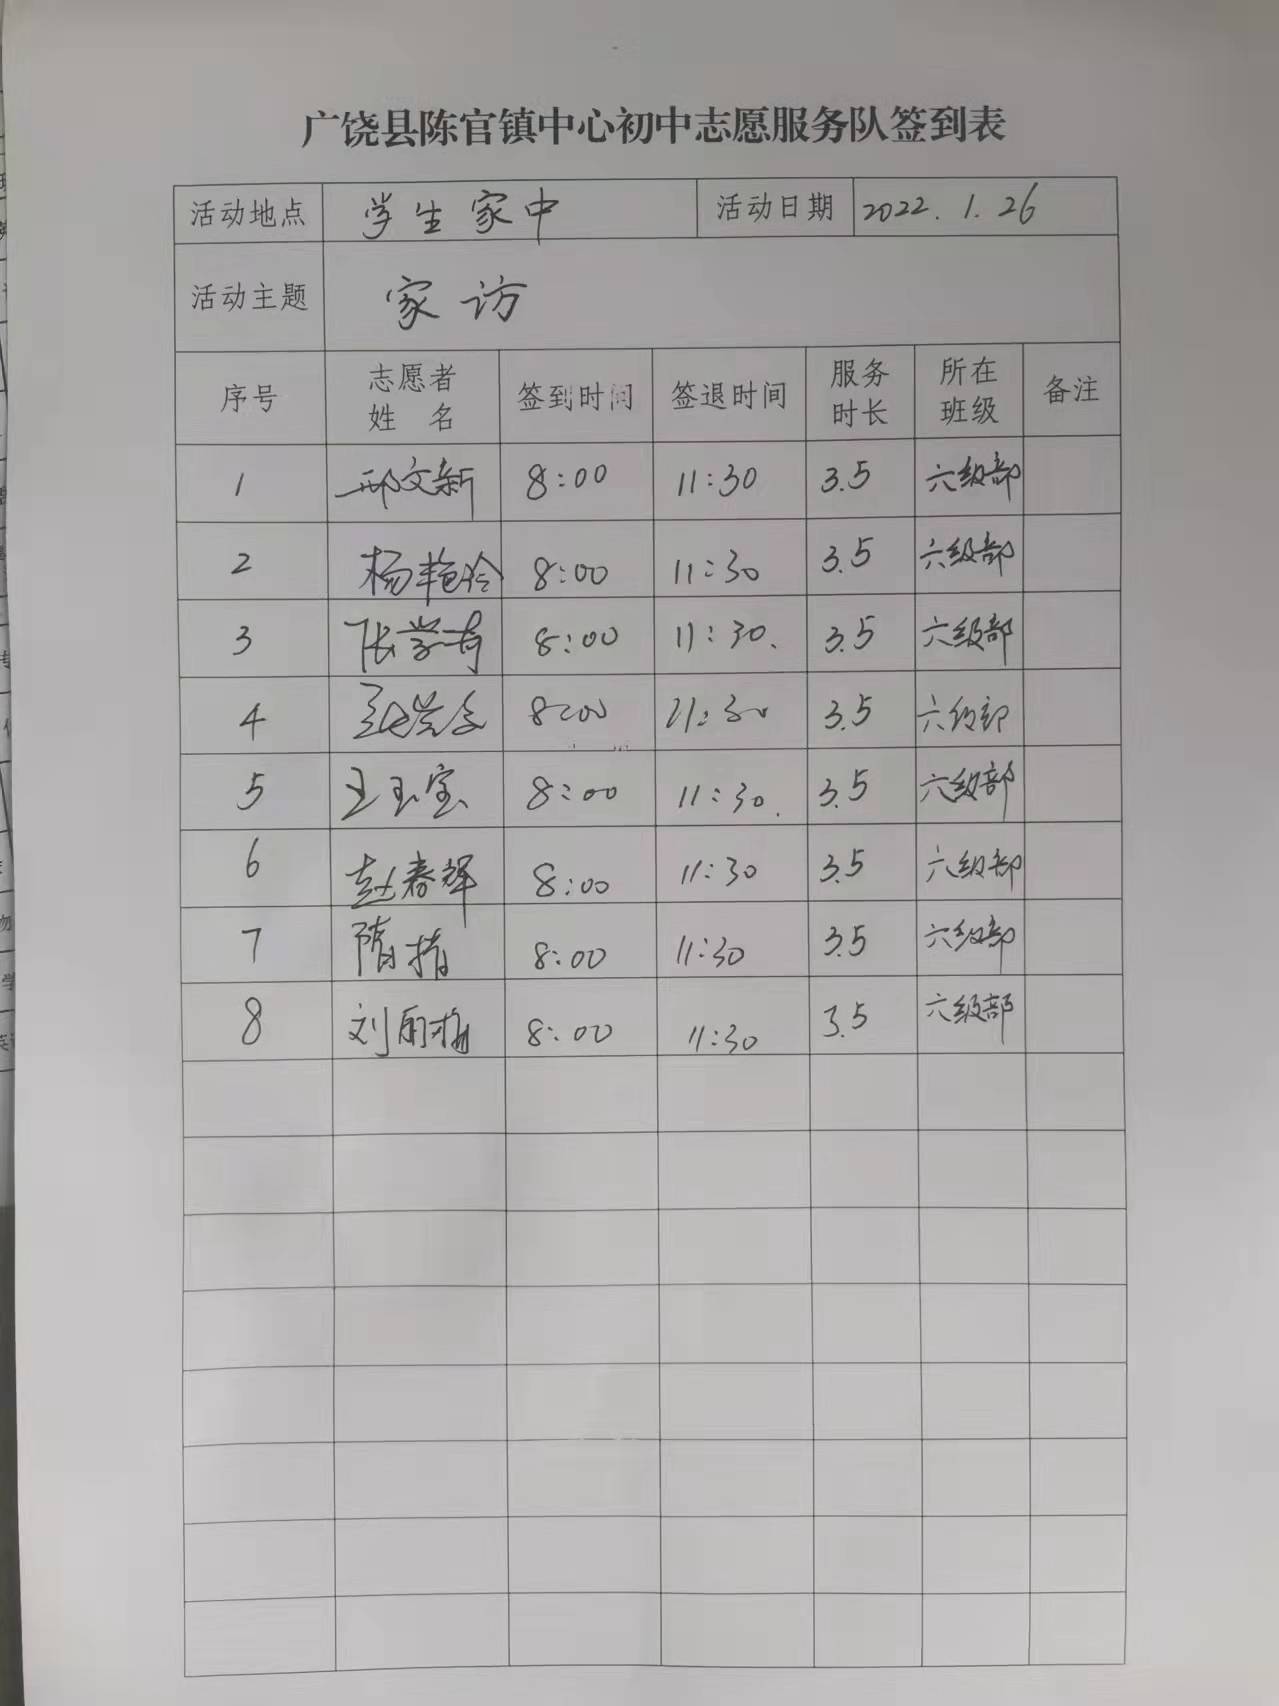 广饶县陈官镇中心初中志愿服务队签到表
活动地点 学生家中 活动日期 2022.1.26
活动主题 家访
序号 志愿者姓名 签到时间 签退时间 服务时长 所在班级 备注
1 邢文新 8:00 11:30 3.5 六级部
2 杨艳玲 8:00 11:30 3.5 六级部
3 张学奇 8:00 11:30. 3.5 六级部
4 8:00 11:30 3.5 六级部
5 王玉宝 8:00 11:30. 3.5 六级部
6 赵春辉 8:00 11:30 3.5 六级部
7 隋 8:00 11:30 3.5 六级部
8 刘丽梅 8:00 11:30 3.5 六级部